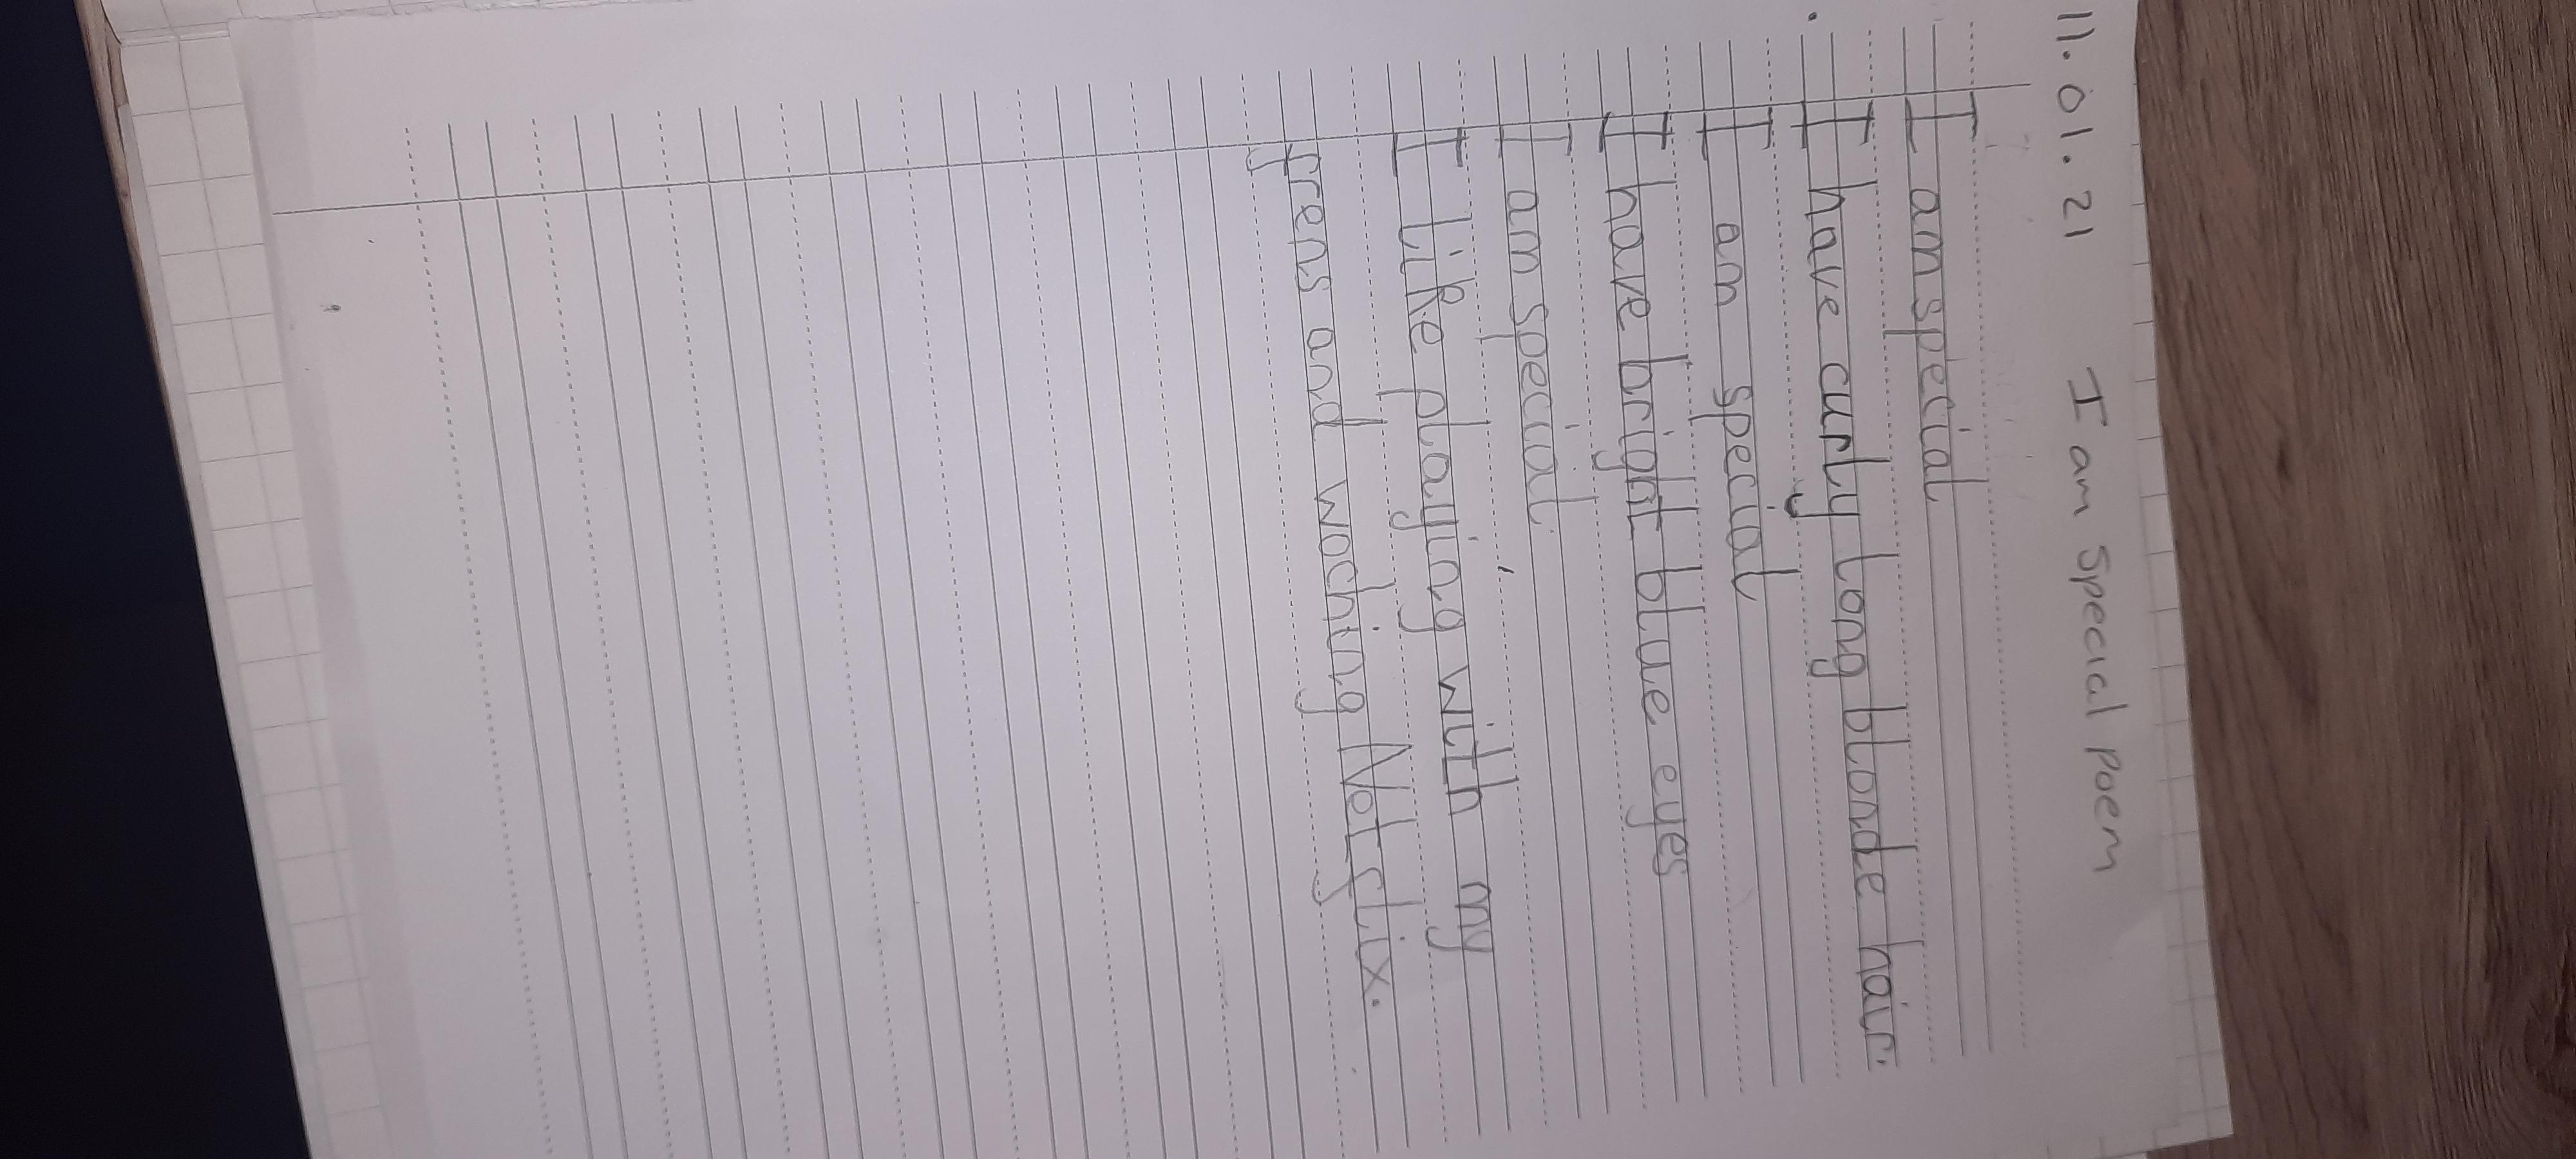 11.01.21 I am special poem
I am special
I have curly long blonde hair.
I am special
I have bright blue eyes
I am special
I like playing with my
frens and woching Netflix.